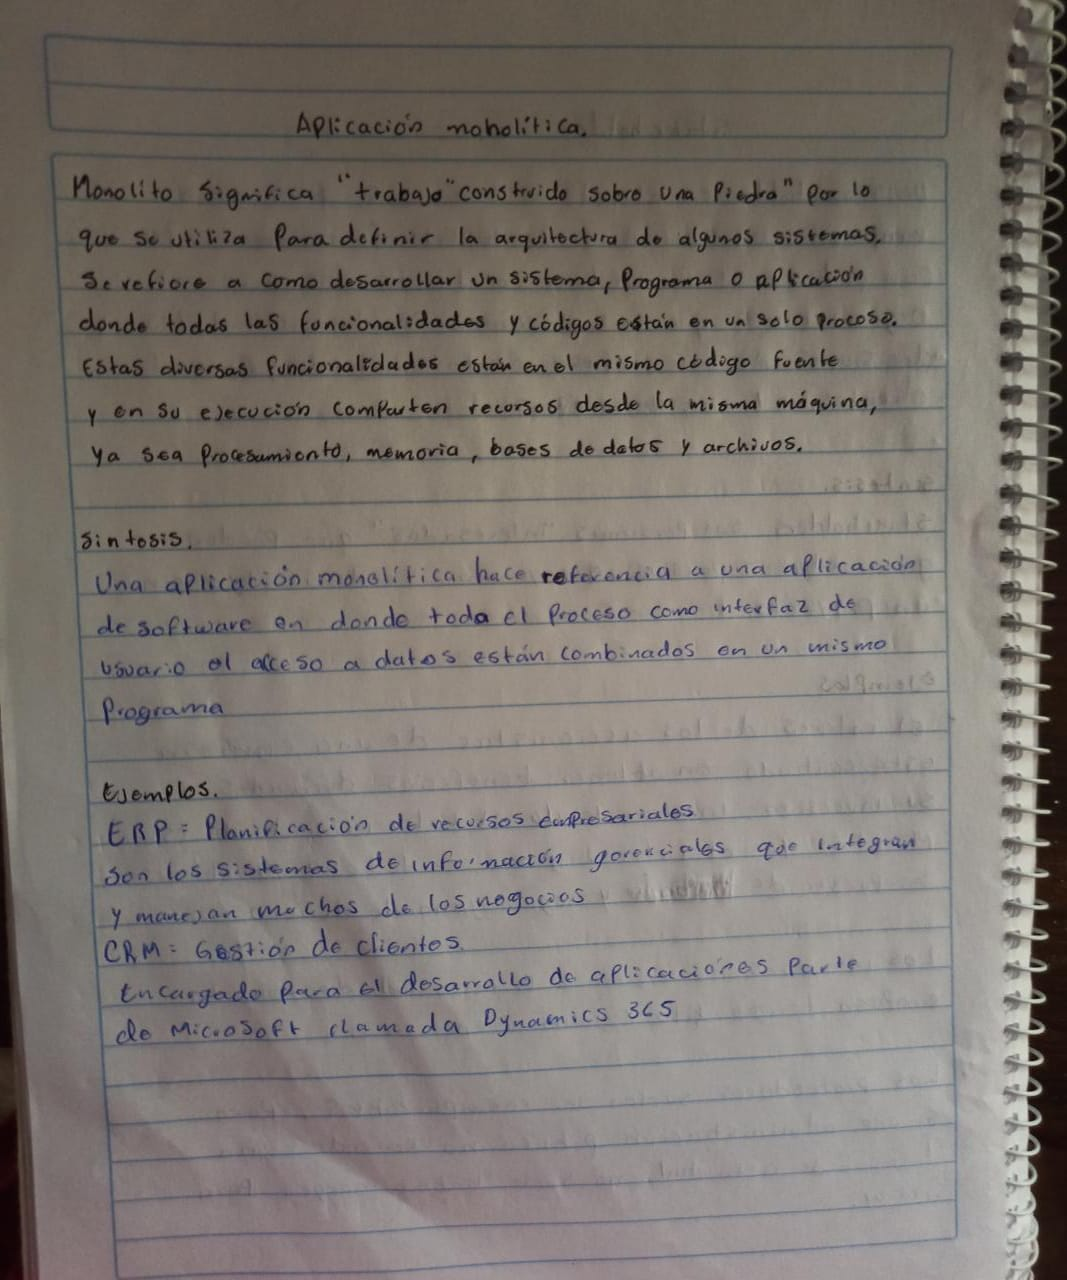 Aplicación monolítica.
Monolito significa "trabajo" construido sobre una Piedra" por lo
que se utiliza Para definir la arquitectura de algunos sistemas.
Se refiere a como desarrollar un sistema, Programa o aplicación
donde todas las funcionalidades y códigos están en un solo proceso.
Estas diversas funcionalidades están en el mismo código fuente
y en su ejecución comparten recursos desde la misma máquina,
ya sea Procesamiento, memoria, bases de datos y archivos.
Sintesis.
Una aplicación monolítica hace referencia a una aplicación
de software en donde toda el Proceso como interfaz de
usuario el acceso a datos están combinados en un mismo
Programa
Ejemplos.
ERP = Planificación de recursos empresariales
Son los sistemas de información gerenciales que integran
y manejan muchos de los negocios
CRM = Gestión de clientes.
Encargado para el desarrollo de aplicaciones Parte
de Microsoft llamada Dynamics 365